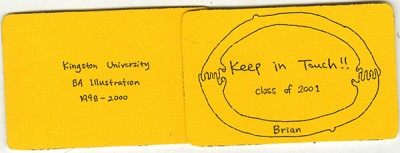 Kingston University
BA Illustration
1998-2000
Keep in Touch!!
class of 2001
Brian